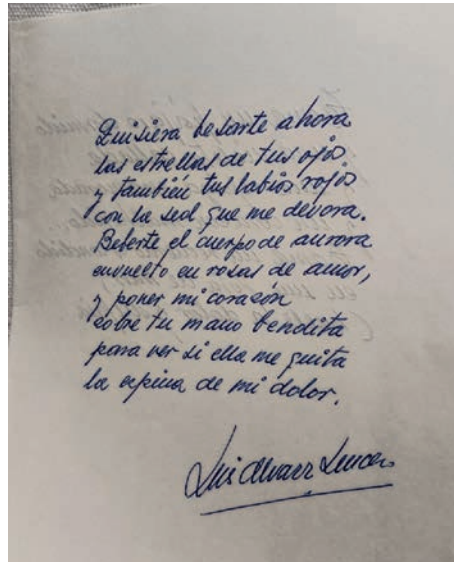 Quisiera besarte ahora
las estrellas de tus ojos
y también tus labios rojos
con la sed que me devora.
Beberte el cuerpo de aurora
envuelto en rosas de amor,
y poner mi corazón
sobre tu mano bendita
para ver si ella me quita
la espina de mi dolor.
Luis Alvarez Lencero